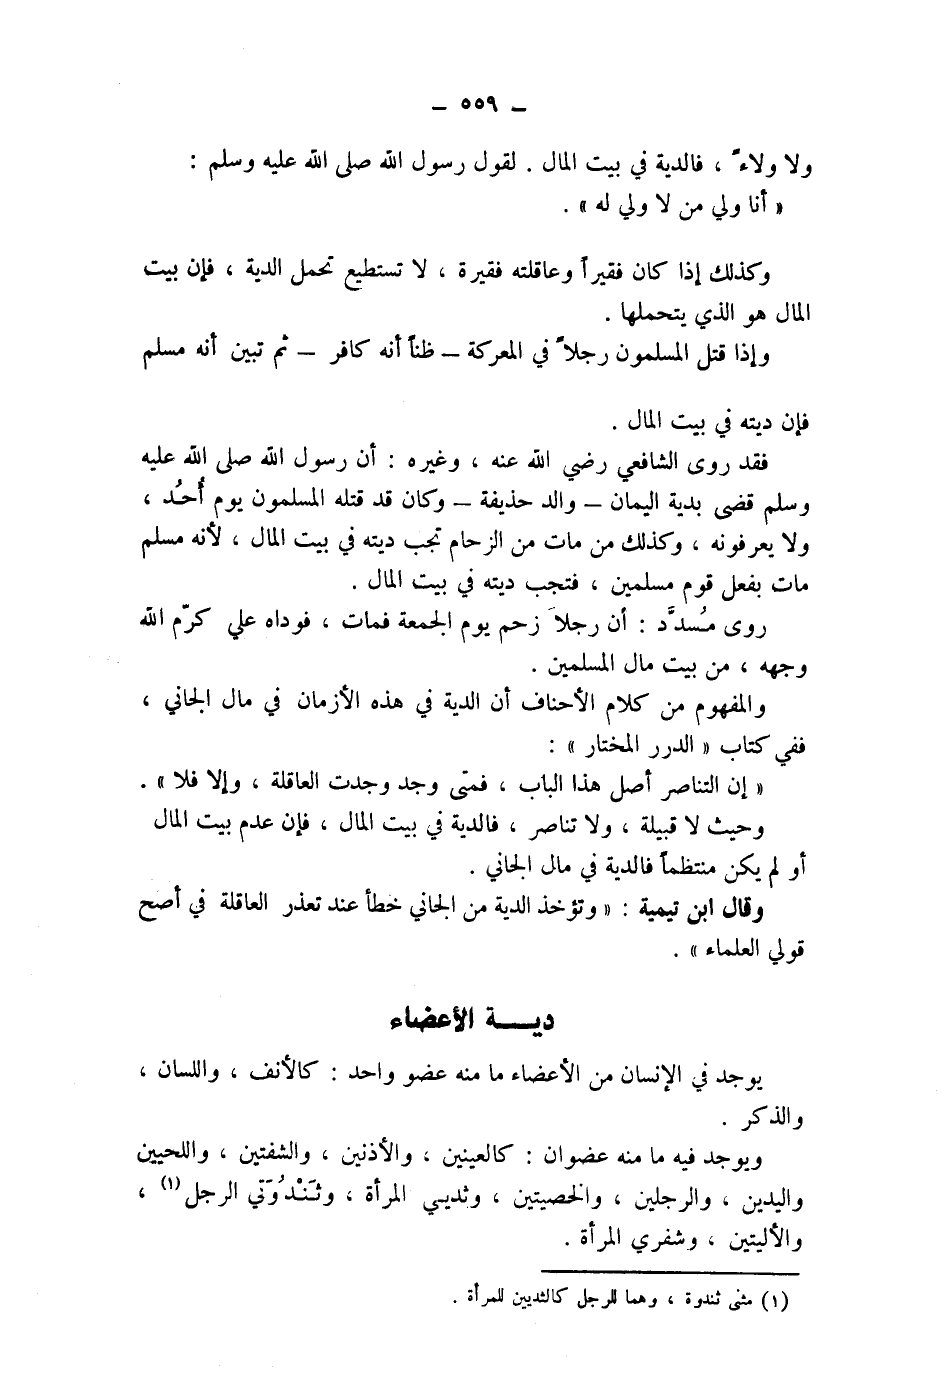 ـ ٥٥٩ ـ
ولا ولاءً ، فالدية في بيت المال . لقول رسول الله صلى الله عليه وسلم :
« أنا ولي من لا ولي له » .
وكذلك إذا كان فقيراً وعاقلته فقيرة ، لا تستطيع تحمل الدية ، فإن بيت
المال هو الذي يتحملها .
وإذا قتل المسلمون رجلاً في المعركة ـ ظناً أنه كافر ـ ثم تبين أنه مسلم
فإن ديته في بيت المال .
فقد روى الشافعي رضي الله عنه ، وغيره : أن رسول الله صلى الله عليه
وسلم قضى بدية اليمان ـ والد حذيفة ـ وكان قد قتله المسلمون يوم أُحُد ،
ولا يعرفونه ، وكذلك من مات من الزحام تجب ديته في بيت المال ، لأنه مسلم
مات بفعل قوم مسلمين ، فتجب ديته في بيت المال .
روى مُسدَّد : أن رجلاً زحم يوم الجمعة فمات ، فوداه علي كرّم الله
وجهه ، من بيت مال المسلمين .
والمفهوم من كلام الأحناف أن الدية في هذه الأزمان في مال الجاني ،
ففي كتاب « الدرر المختار » :
« إن التناصر أصل هذا الباب ، فمتى وجد وجدت العاقلة ، وإلا فلا » .
وحيث لا قبيلة ، ولا تناصر ، فالدية في بيت المال ، فإن عدم بيت المال
أو لم يكن منتظماً فالدية في مال الجاني .
وقال ابن تيمية : « وتؤخذ الدية من الجاني خطأ عند تعذر العاقلة في أصح
قولي العلماء » .
ديـــة الأعضاء
يوجد في الإنسان من الأعضاء ما منه عضو واحد : كالأنف ، واللسان ،
والذكر .
ويوجد فيه ما منه عضوان : كالعينين ، والأذنين ، والشفتين ، واللحيين
واليدين ، والرجلين ، والخصيتين ، وثديي المرأة ، وثَنْدُوَتي الرجل (١) ،
والأليتين ، وشفري المرأة .
(١) مثنى ثندوة ، وهما للرجل كالثديين للمرأة .